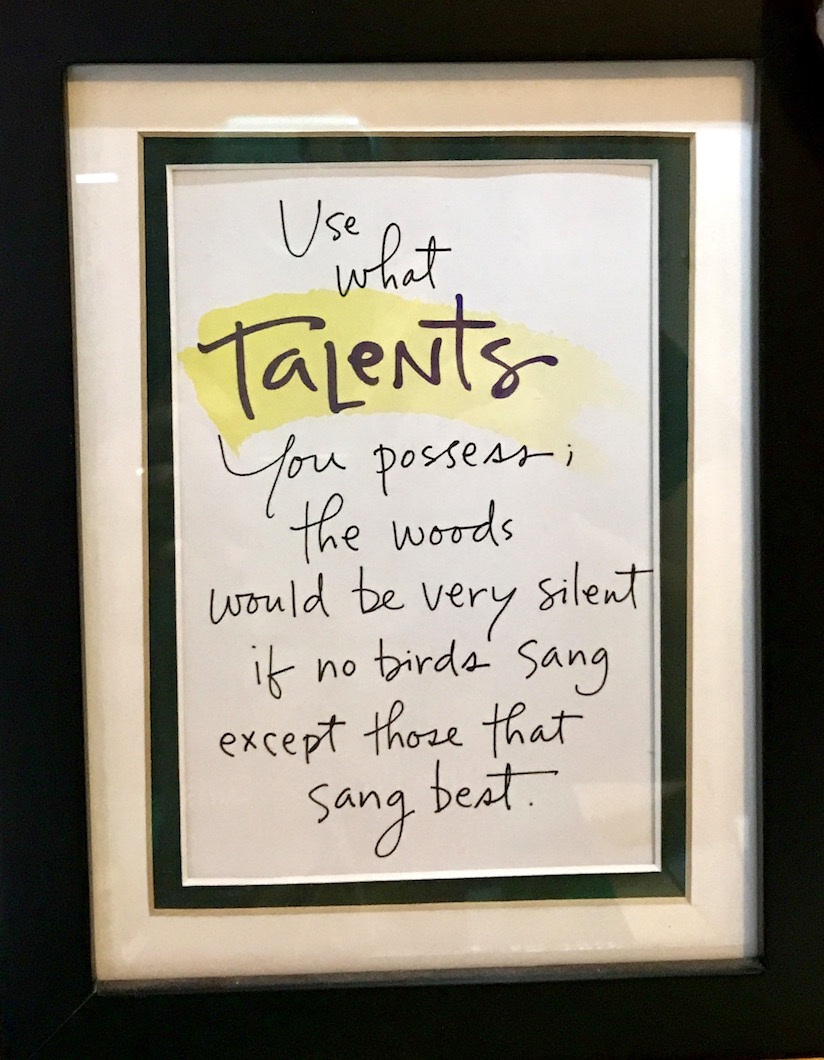 Use
what
TaLeNTs
You possess;
the woods
would be very silent
if no birds sang
except those that
sang best.